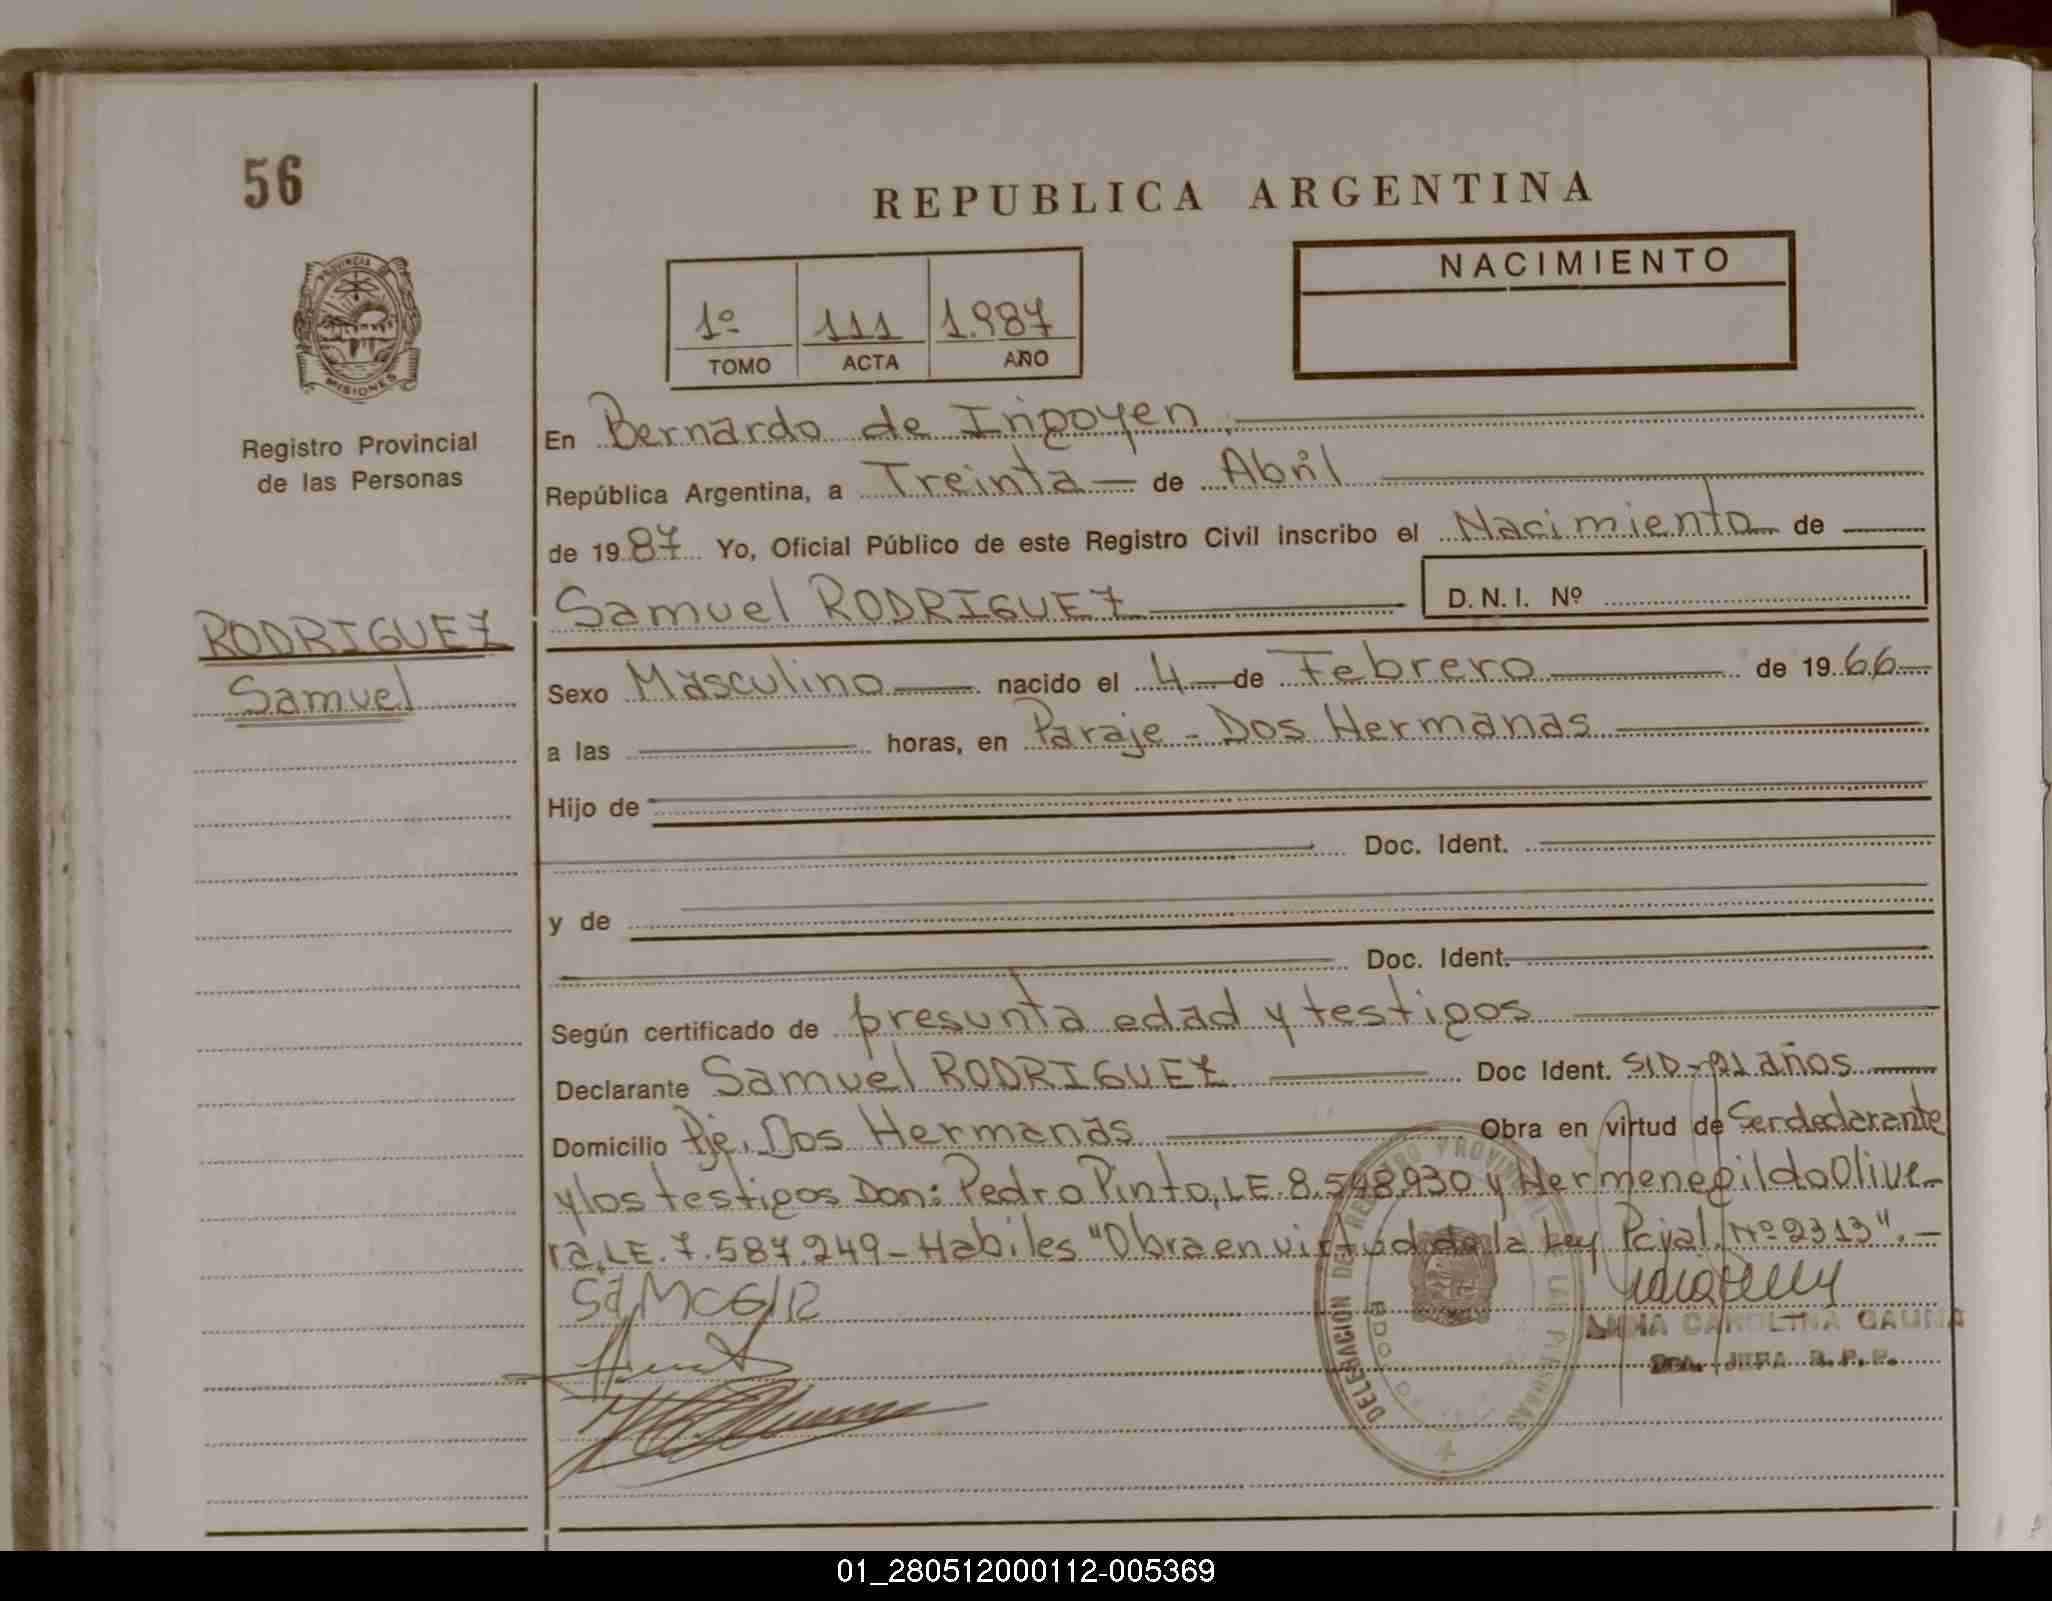 56
REPUBLICA ARGENTINA
NACIMIENTO
1º 111 1.987
TOMO ACTA AÑO
PROVINCIA DE
MISIONES
Registro Provincial
de las Personas
En Bernardo de Irigoyen
República Argentina, a Treinta de Abril
de 1987 Yo, Oficial Público de este Registro Civil inscribo el Nacimiento de
Samuel RODRIGUEZ D.N.I. Nº
RODRIGUEZ
Samuel
Sexo Masculino nacido el 4 de Febrero de 1966
a las horas, en Paraje - Dos Hermanas
Hijo de
Doc. Ident.
y de
Doc. Ident.
Según certificado de presunta edad y testigos
Declarante Samuel RODRIGUEZ Doc Ident. S/D - 21 años
Domicilio Pje. Dos Hermanas Obra en virtud de Ser declarante
y los testigos Don: Pedro Pinto, LE. 8.548.930 y Hermenegildo Olive-
ra, LE. 7.587.249 - Habiles "Obra en virtud de la Ley Pcial. Nº 2313". -
DELEGACIÓN DE REGISTRO PROVINCIAL DE LAS PERSONAS
CAROLINA GAUNA
JEFA R.P.P.
01_280512000112-005369